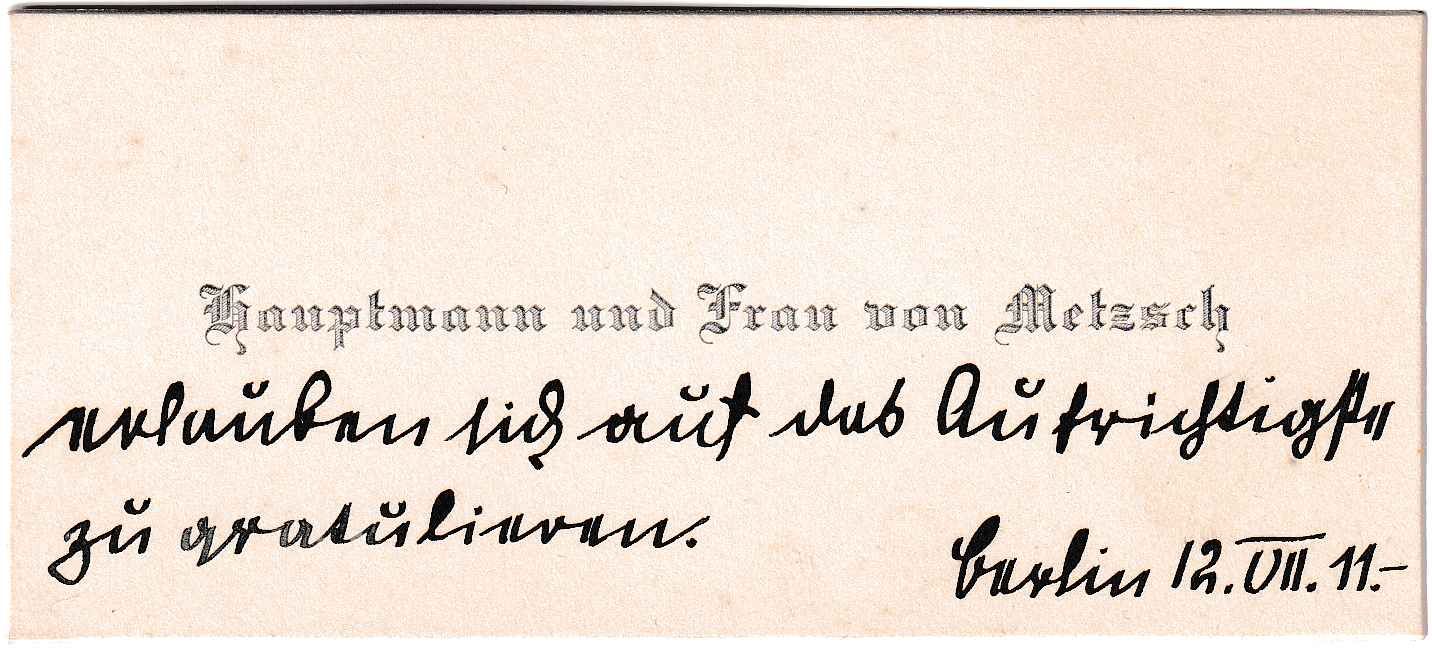 Hauptmann und Frau von Metzsch
erlauben sich auf das Aufrichtigste
zu gratulieren.
Berlin 12.VII.11.-